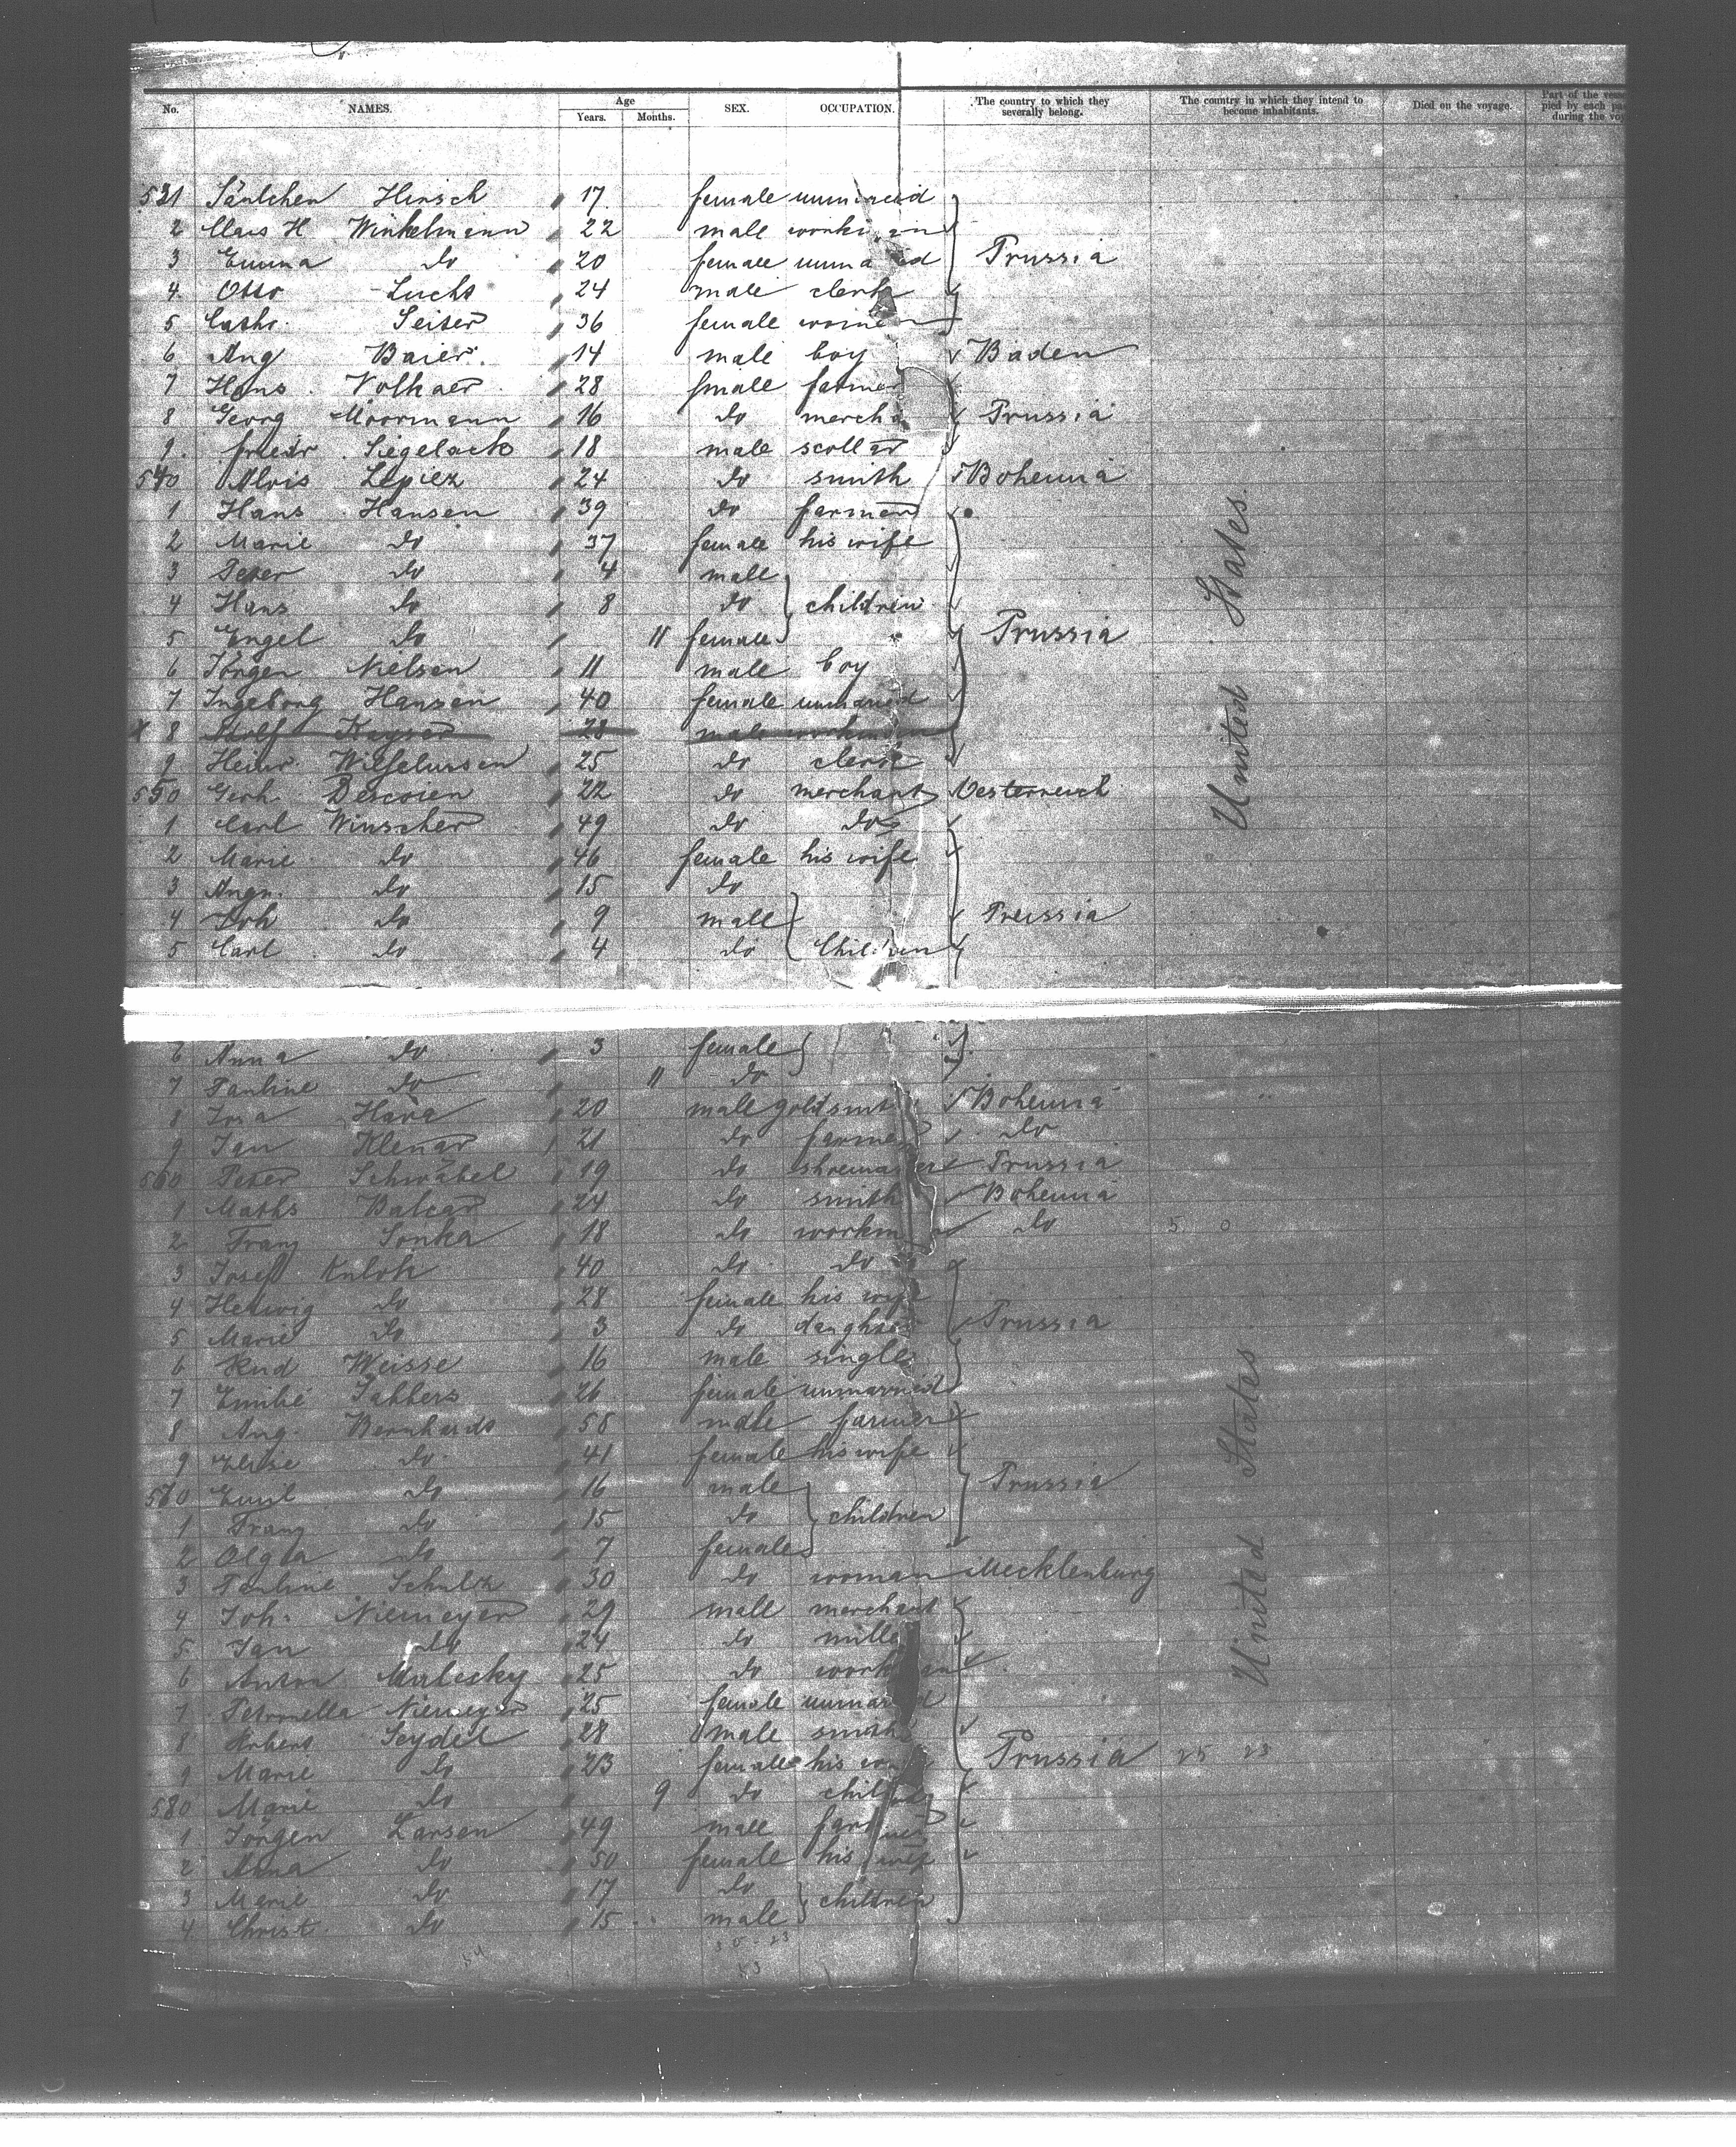 No. NAMES. Age Years. Months. SEX. OCCUPATION. The country to which they severally belong. The country in which they intend to become inhabitants. Died on the voyage. Part of the
531 Hirsch 17 female
2 Claus H Winkelmann 22 male
3 Emma do 20 female Prussia
4 Otto Lucht 24 male clerk
5 Cathr. Seiser 36 female
6 Aug Baier 14 male boy Baden
7 Hans Volkaer 28 farmer
8 Georg Moormann 16 do Prussia
9 Friedr Siegelack 18 male
540 Alois 24 do smith Bohemia
1 Hans Hansen 39 do farmer
2 Marie do 37 female his wife
3 Peter do 4 male
4 Hans do 8 do children
5 Engel do 11 female Prussia
6 Jörgen Nielsen 11 male boy
7 Ingeborg Hansen 40 female unmarried
X 8 Adolf Kayser 28 male workman
9 Heinr. 25 do clerk
550 Gerh. 22 do merchant Oesterreich
1 Carl Winscher 49 do do
2 Marie do 46 female his wife
3 do 15 do
4 Joh do 9 male Prussia
5 Carl do 4 do Children
United States
6 Anna do 3 female
7 Pauline do 11 do
8 Hava 20 male Bohemia
9 Jan Klenar 21 do farmer do
560 Peter Schwäbel 19 do Prussia
1 Maths Balcar 24 do smith Bohemia
2 Franz Sonka 18 do do 5 0
3 Josef 40 do do
4 Hedwig do 28 female his wife
5 Marie do 3 do daughter Prussia
6 Rud Weisse 16 male single
7 Emilie 26 female unmarried
8 Aug. Bernhards 58 male farmer
9 Elise do 41 female his wife
570 Emil do 16 male Prussia
1 Franz do 15 do children
2 Olga do 7 female
3 Pauline Schulz 30 do woman Mecklenburg
4 Joh. Niemeyer 29 male merchant
5 Jan do 24 do
6 Anton Malecky 25 do
7 Petronella Niemeyer 25 female
8 Robert Seydel 28 male smith
9 Marie do 23 female his Prussia 25 23
580 Marie do 9 do child
1 Jörgen Larsen 49 male
2 Anna do 50 female his wife
3 Marie do 17 do children
4 Christ. do 15 male
United States